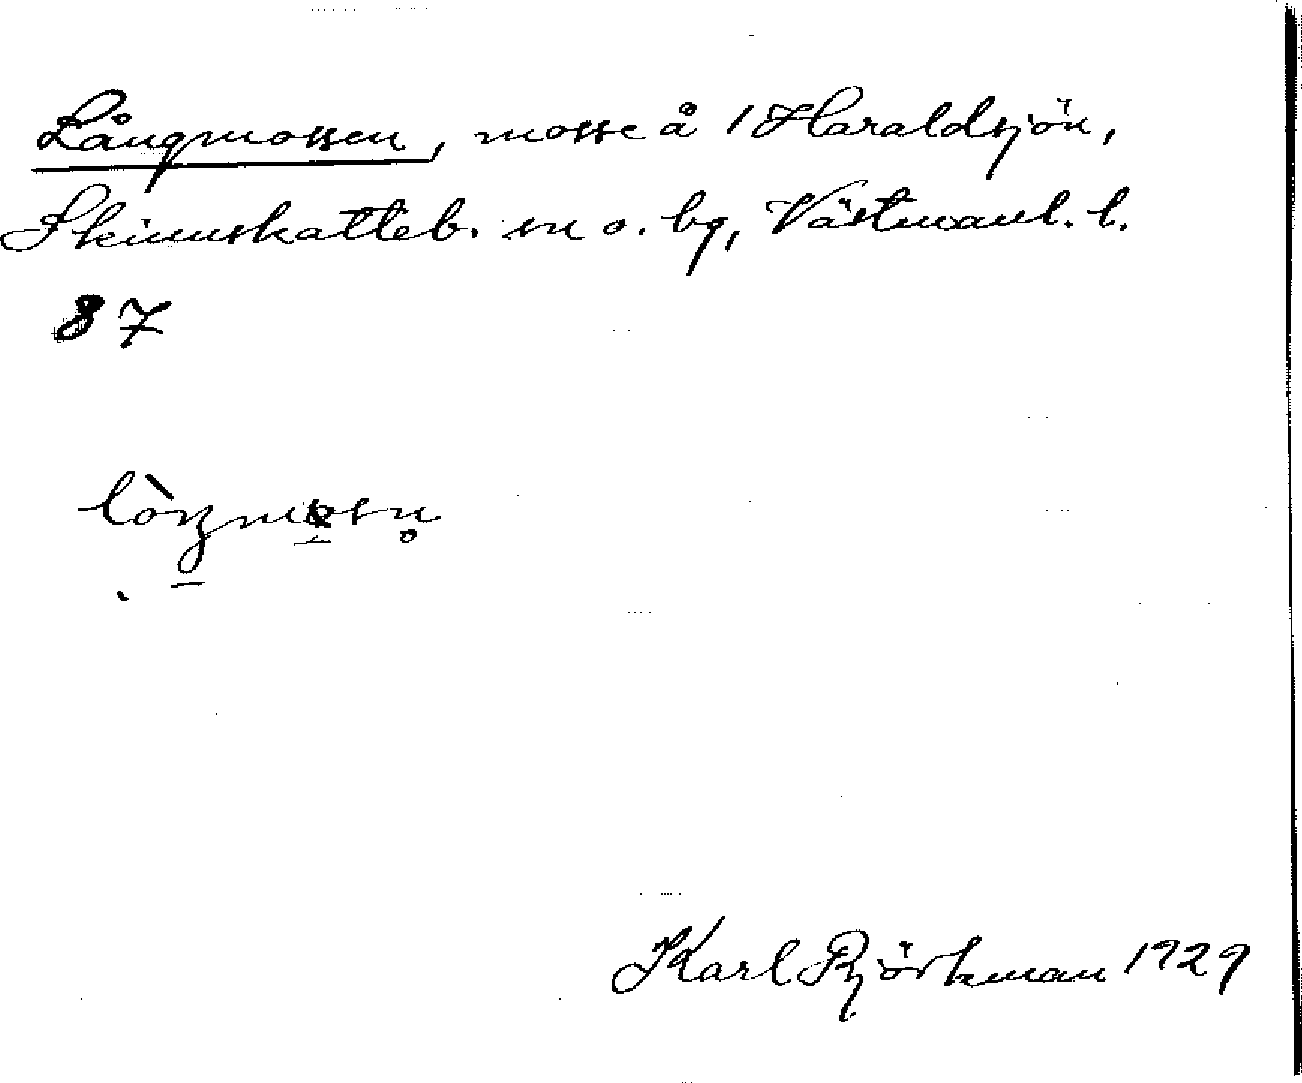 Långmossen, mosse å 1 Haraldsjön,
Skinnskatteb. sn o. bg, Västmanl. l.
87
Karl Björkman 1929